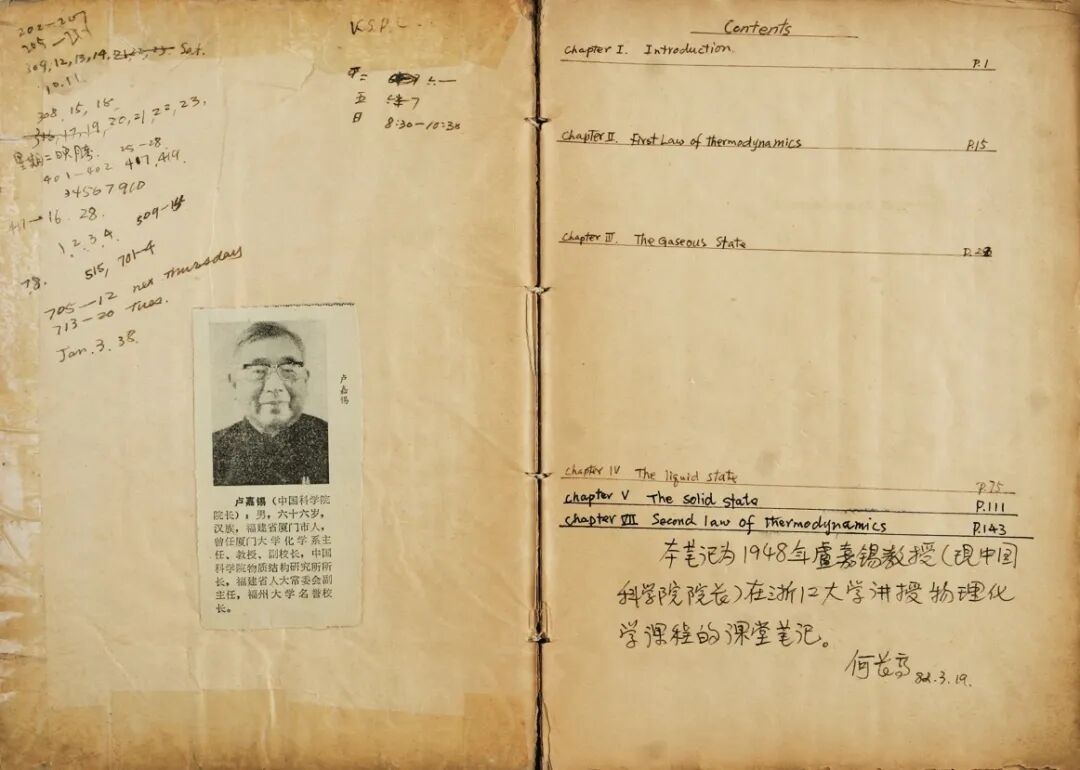 202-207
309, 12, 13, 14, Sat.
10.11.
308, 15, 18
17, 19, 20, 21, 22, 23.
星期二晚腾. 25-28.
401-402 407, 419.
34567910
16. 28.
1, 2, 3, 4. 509-15
515, 701-4
705-12 nex thursday
713-20 Tues.
Jan. 3. 38.
K.S.P.
五 7
日 8:30-10:30
卢嘉锡
卢嘉锡（中国科学院
院长）：男，六十六岁，
汉族，福建省厦门市人，
曾任厦门大学化学系主
任、教授、副校长，中国
科学院物质结构研究所所
长，福建省人大常委会副
主任，福州大学名誉校
长。
Contents
Chapter I. Introduction. P.1
Chapter II. First Law of thermodynamics P.15
Chapter III. The Gaseous State
Chapter IV The liquid state P.75
Chapter V The solid state P.111
Chapter VII Second law of thermodynamics P.143
本笔记为1948年盧嘉锡教授（现中国
科学院院长）在浙江大学讲授物理化
学课程的课堂笔记。
何长高 82.3.19.